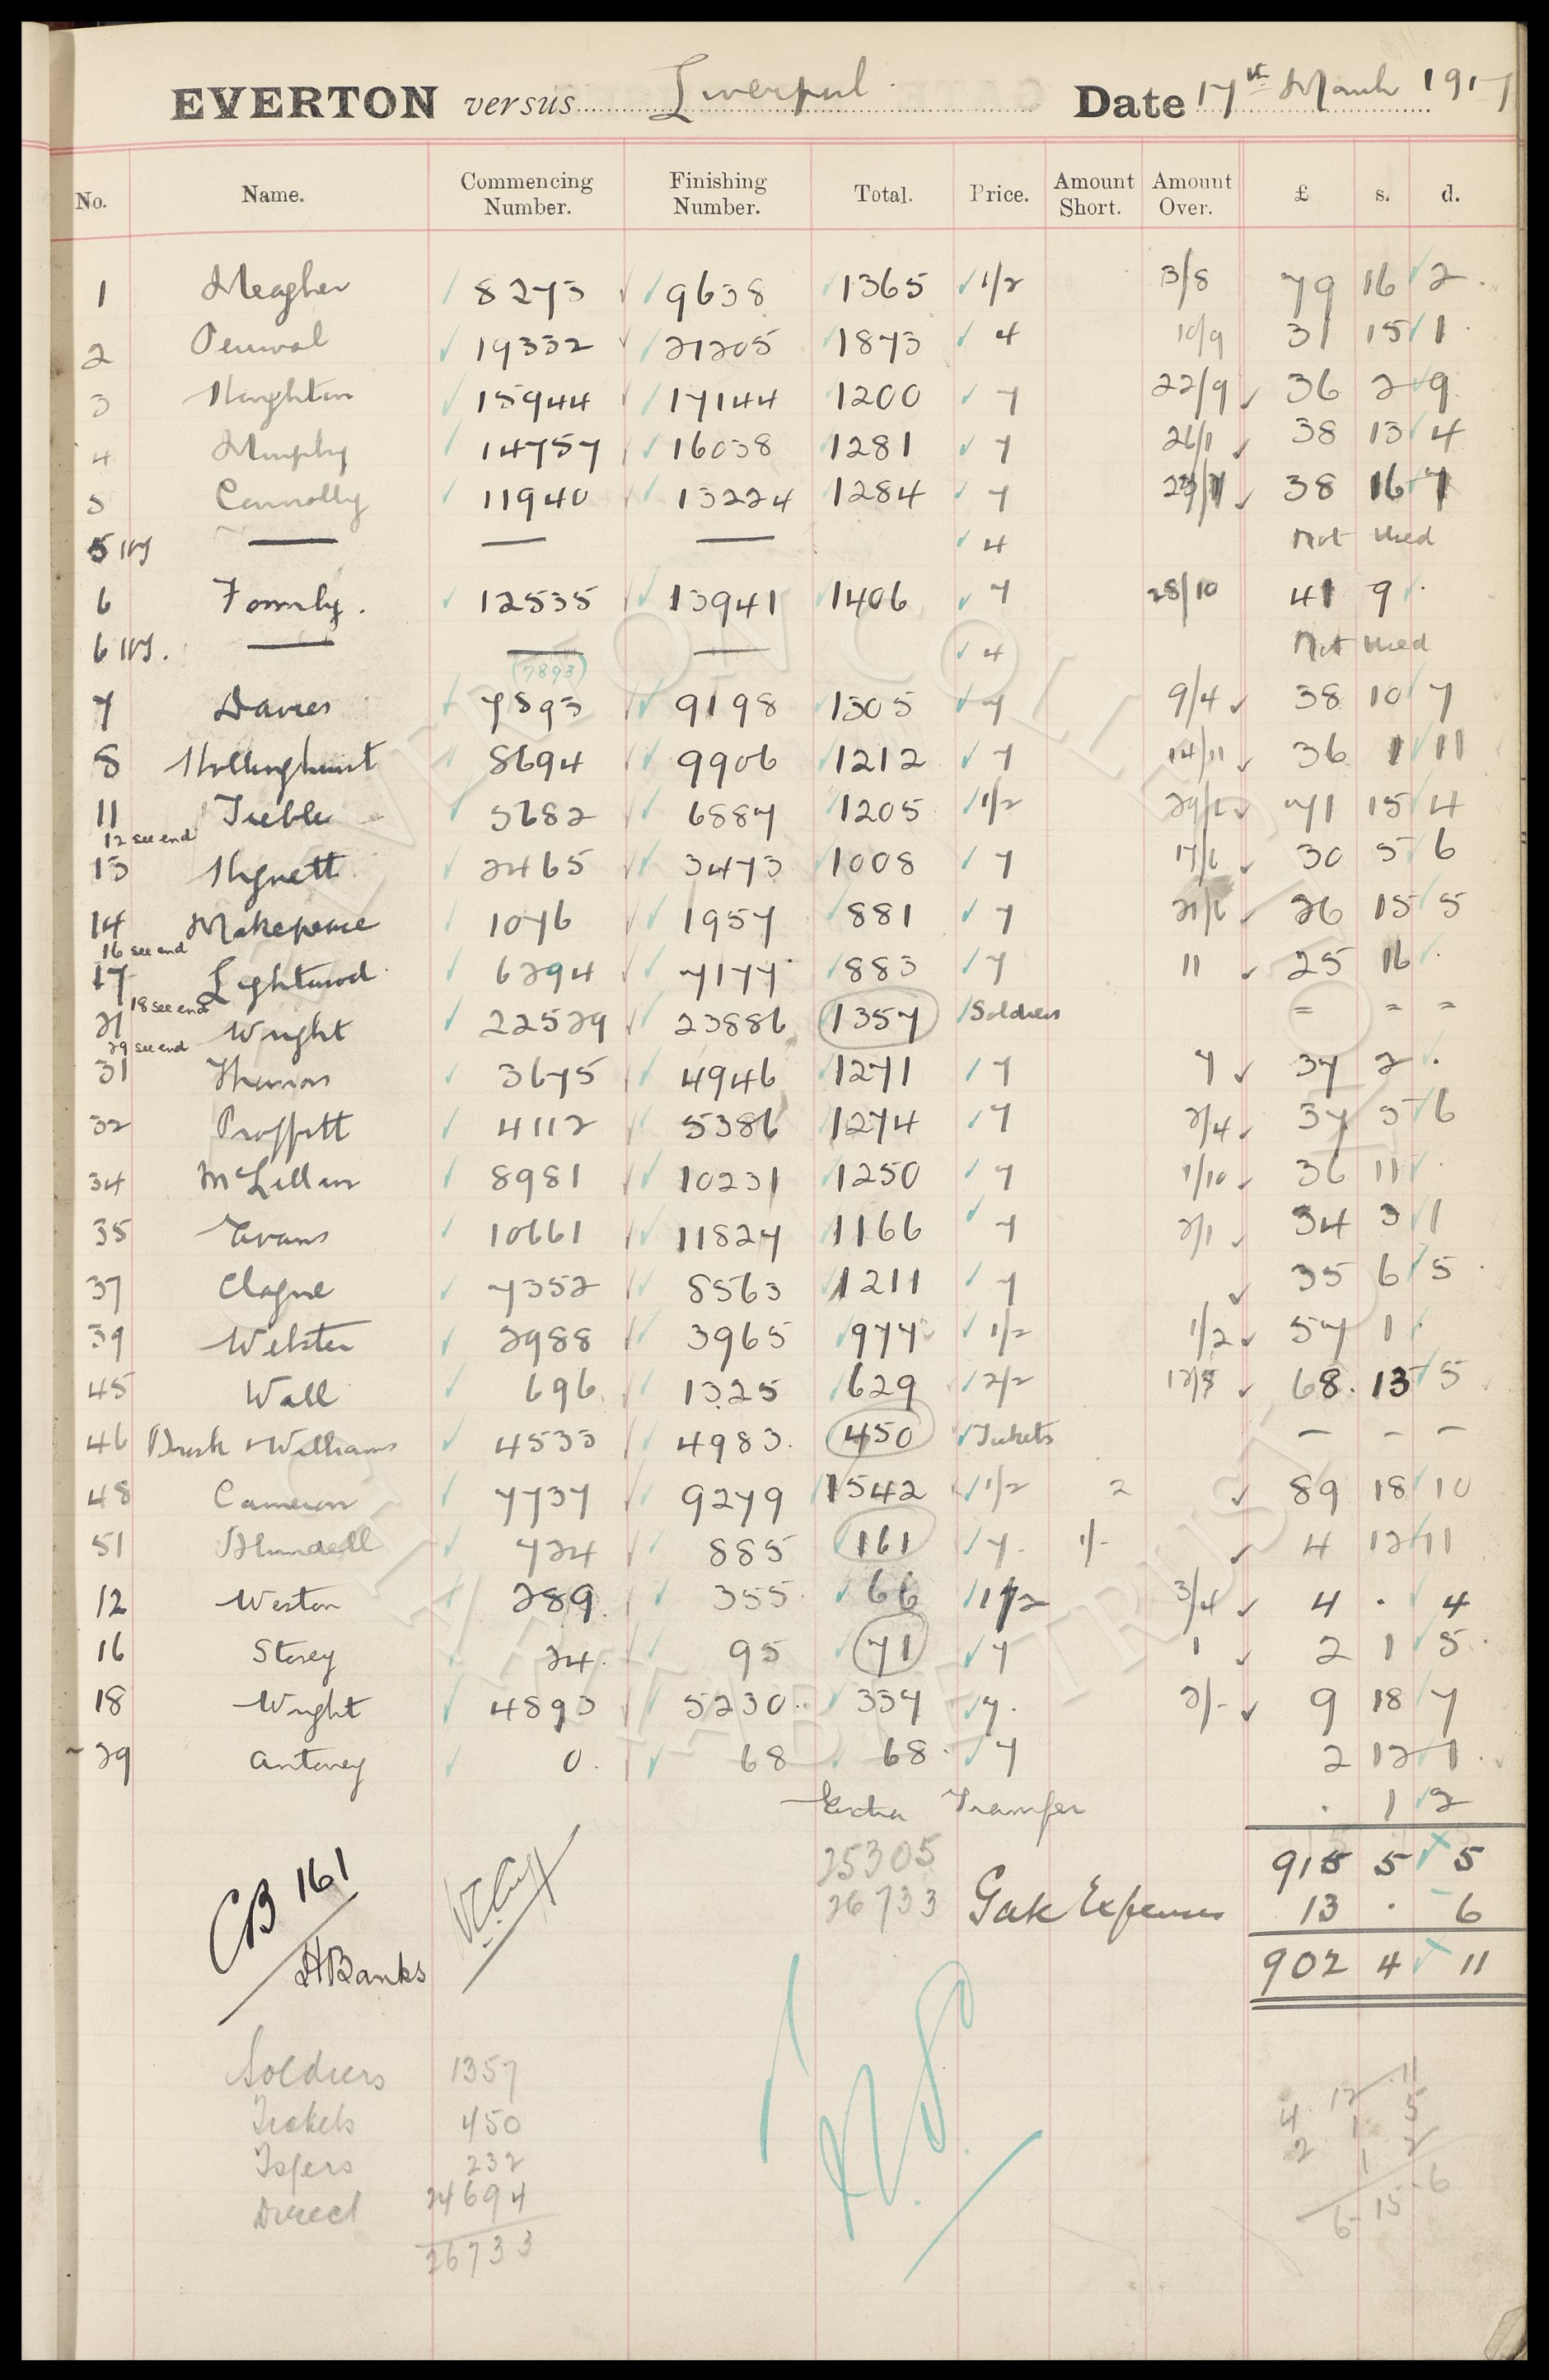 EVERTON versus Liverpool Date 17th March 1917
No. Name. Commencing Number. Finishing Number. Total. Price. Amount Short. Amount Over. £ s. d.
1 Meagher 8273 9638 1365 1/2 3/8 79 16 2
2 Percival 19332 21205 1873 4 10/9 31 15 1
3 Houghton 15944 17144 1200 7 22/9 36 2 9
4 Murphy 14757 16038 1281 7 26/1 38 13 4
5 Connolly 11940 13224 1284 7 38 16 7
5 — — — 4 Not Used
6 Formby. 12535 13941 1406 7 28/10 41 9 .
6 — — — 4 Not Used
(7893)
7 Davies 7893 9198 1305 7 9/4 38 10 7
8 Hollinghurst 8694 9906 1212 7 14/11 36 1 11
11 Treble 5682 6887 1205 1/2 71 15 4
12 see end
13 Hignett 2465 3473 1008 7 17/6 30 5 6
14 Makepeace 1076 1957 881 7 21/6 26 15 5
16 see end
17 Lightwood 6294 7177 883 7 11 25 16 .
18 see end
21 Wright 22529 23886 1357 Soldiers = = =
29 see end
31 Thomas 3675 4946 1271 7 7 37 2 .
32 Proffitt 4112 5386 1274 7 2/4 37 5 6
34 McLellan 8981 10231 1250 7 1/10 36 11 .
35 Evans 10661 11827 1166 7 2/1 34 3 1
37 Clague 7352 8563 1211 7 35 6 5
39 Webster 2988 3965 977 1/2 1/2 57 1 .
45 Wall 696 1325 629 2/2 68 13 5
46 & Williams 4533 4983 450 Tickets – – –
48 Cameron 7737 9279 1542 1/2 2 89 18 10
51 Blundell 724 885 161 7 1/- 4 12 11
12 Weston 289 355 66 1/2 3/4 4 . 4
16 Storey 24 95 71 7 1 2 1 5
18 Wright 4893 5230 337 7 2/- 9 18 7
29 Antoney 0 68 68 7 2 12 1
Extra Transfer . 1 2
25305 915 5 5
26733 Gate Expenses 13 . 6
902 4 11
CB 161
HBanks
Soldiers 1357
Tickets 450
Tsfers 232
Direct 24694
26733
4 12 11
2 1 5
1 2
6 15 6
EVERTON COLLECTION
CHARITABLE TRUST